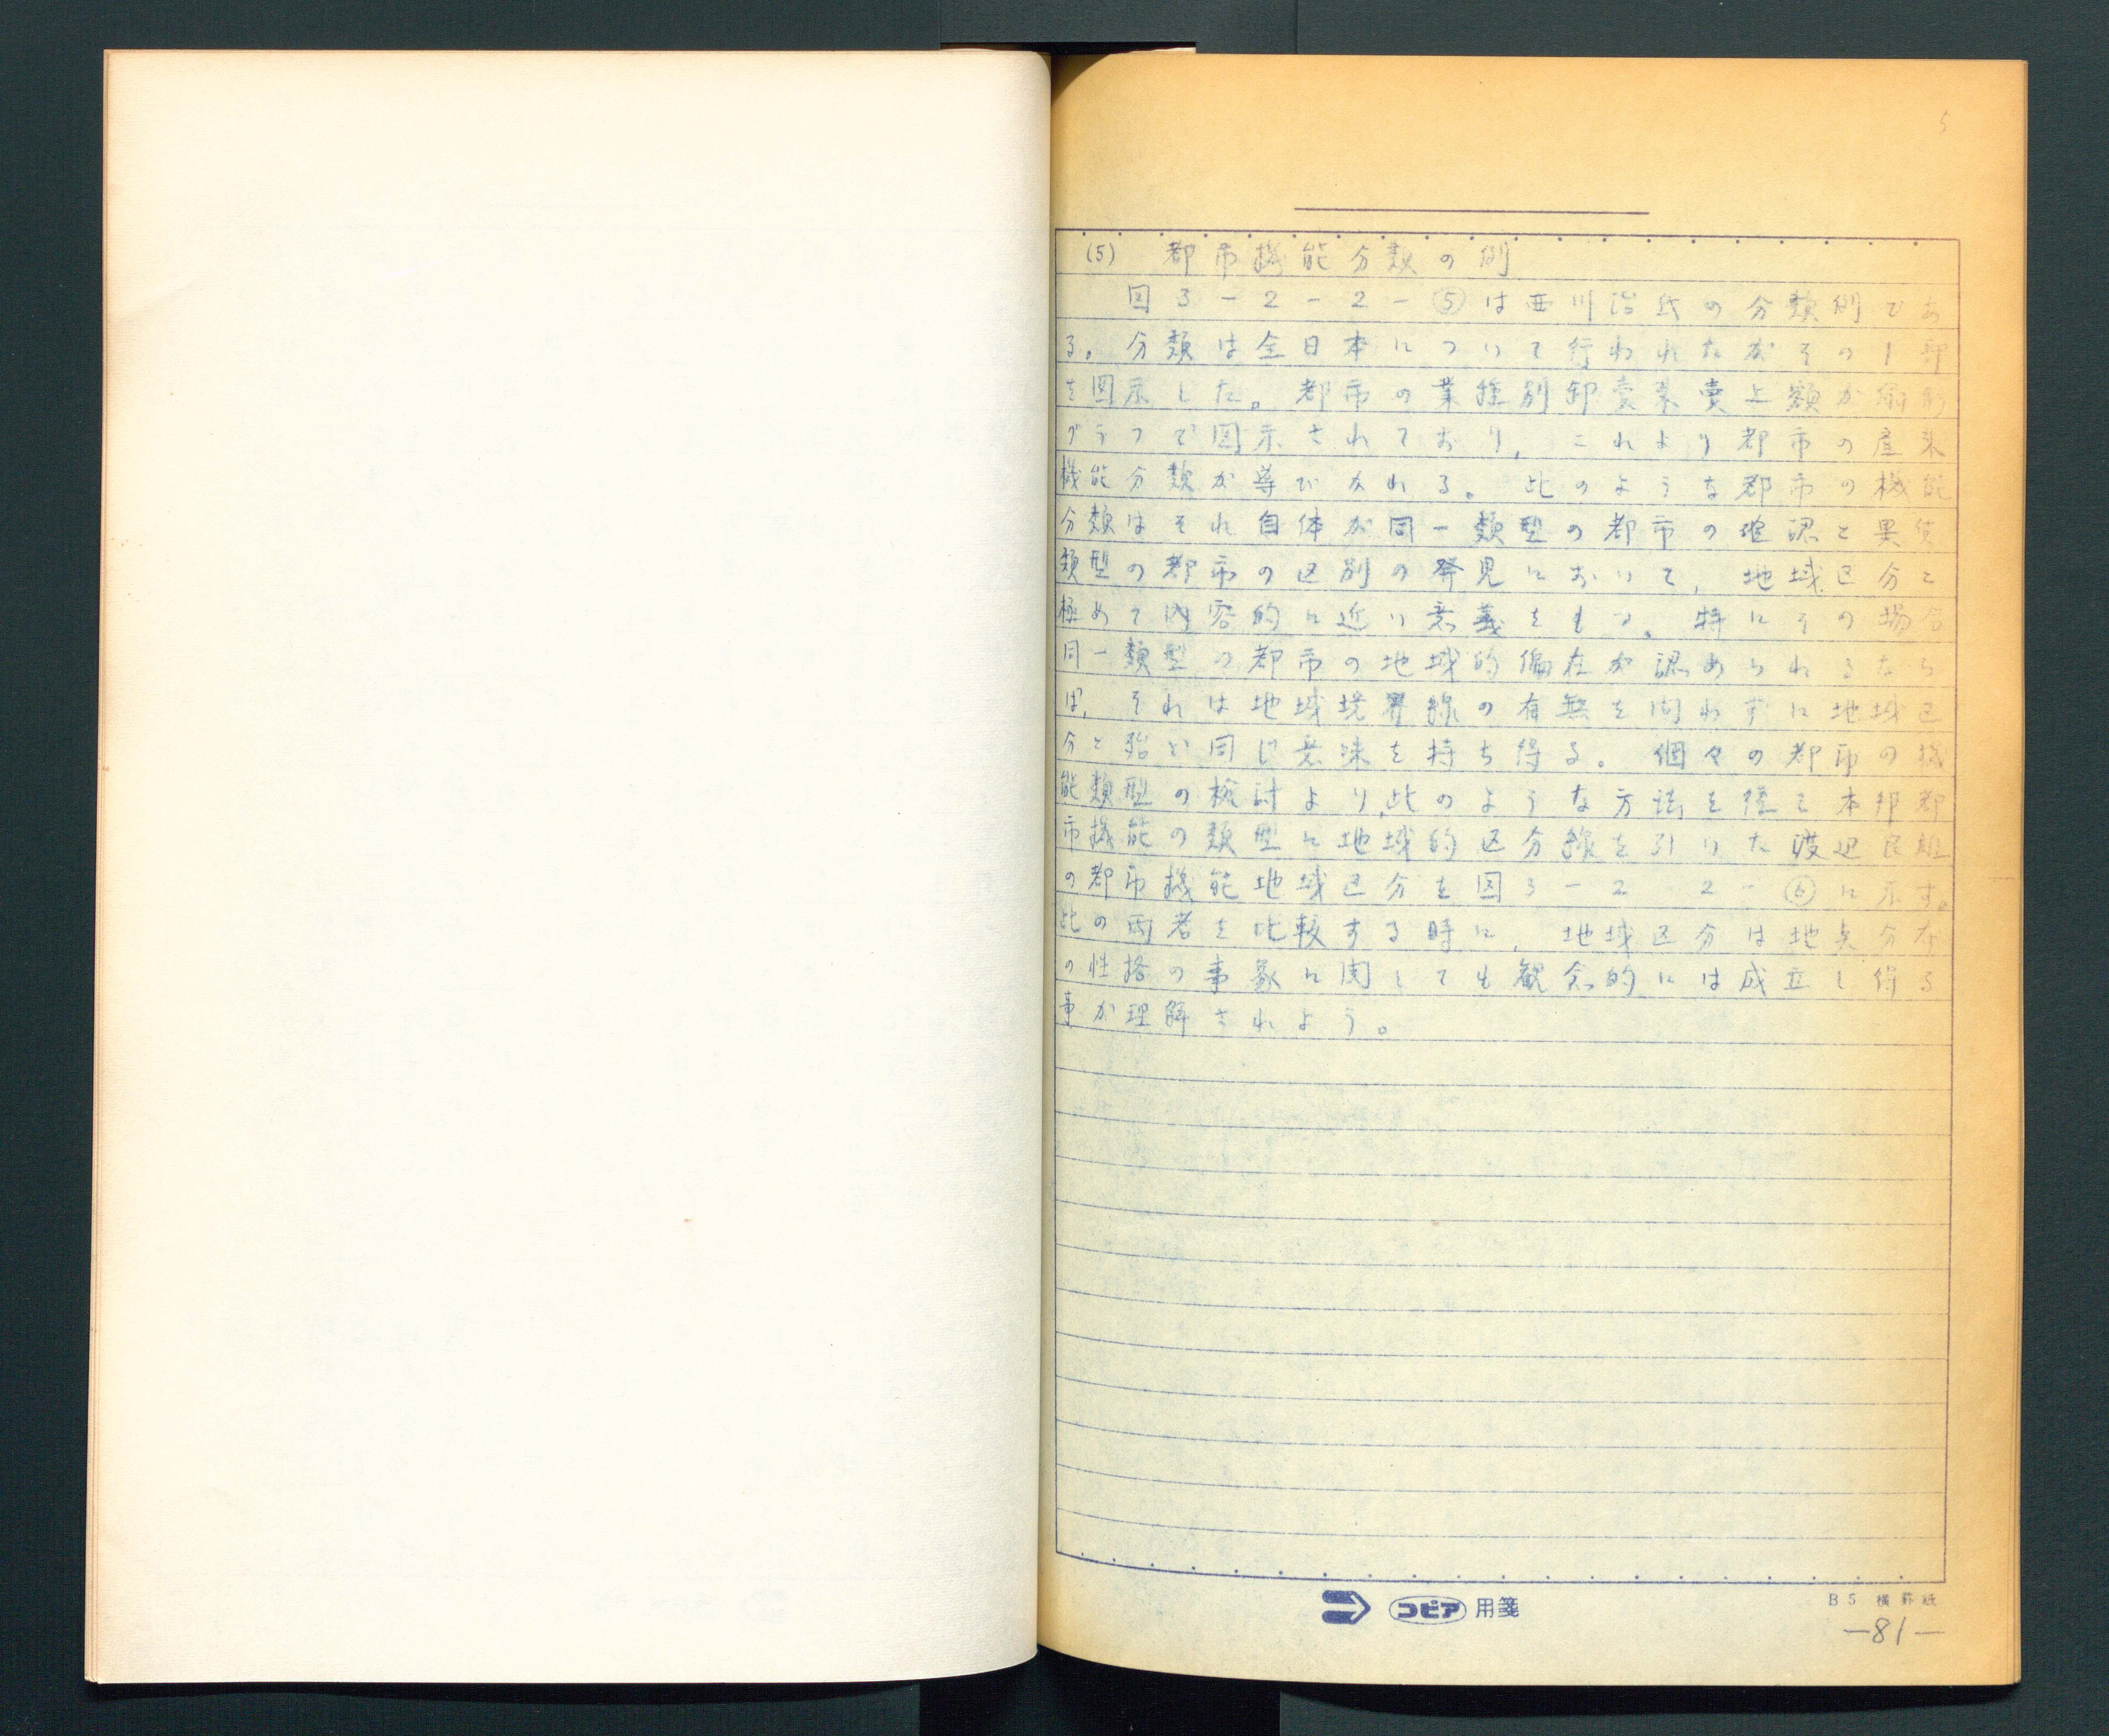 5
(5) 都市機能分類の例
図3-2-2-⑤は西川治氏の分類例であ
る。分類は全日本について行われたがその1部
を図示した。都市の業種別卸売業売上額が扇形
グラフで図示されており,これより都市の産業
機能分類が導びかれる。此のような都市の機能
分類はそれ自体が同一類型の都市の確認と異質
類型の都市の区別の発見において,地域区分と
極めて内容的に近い意義をもつ。特にその場合
同一類型の都市の地域的偏在が認められるなら
ば,それは地域境界線の有無を問わずに地域区
分と殆ど同じ意味を持ち得る。個々の都市の機
能類型の検討より,此のような方法を経て本邦都
市機能の類型に地域的区分線を引いた渡辺良雄
の都市機能地域区分を図3-2-2-⑥に示す。
此の両者を比較する時に,地域区分は地点分布
の性格の事象に関しても観念的には成立し得る
事が理解されよう。
コピア 用箋
B5 横罫紙
-81-